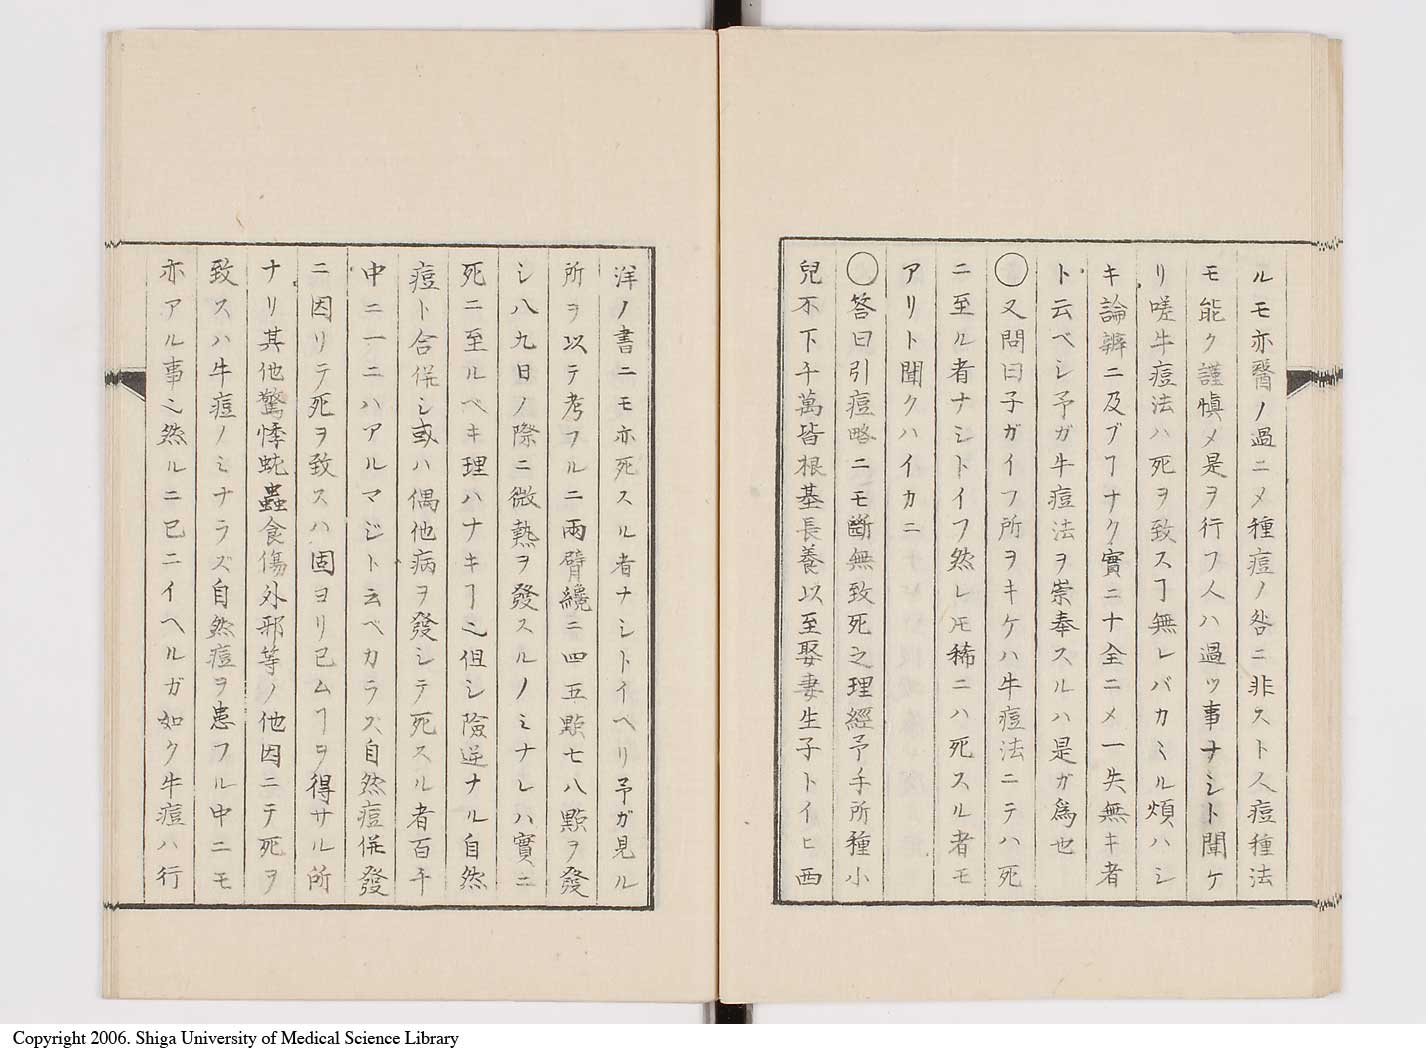 ルモ亦醫ノ過ニメ種痘ノ咎ニ非スト人痘種法
モ能ク謹愼メ是ヲ行フ人ハ過ツ事ナシト聞ケ
リ嗟牛痘法ハ死ヲ致スヿ無レバカミル煩ハシ
キ論辨ニ及ブヿナク實ニ十全ニメ一失無キ者
ト云ベシ予ガ牛痘法ヲ崇奉スルハ是ガ爲也
○又問曰子ガイフ所ヲキケハ牛痘法ニテハ死
ニ至ル者ナシトイフ然レ𪜈稀ニハ死スル者モ
アリト聞クハイカニ
○答曰引痘略ニモ斷無致死之理經予手所種小
兒不下千萬皆根基長養以至娶妻生子トイヒ西
洋ノ書ニモ亦死スル者ナシトイヘリ予ガ見ル
所ヲ以テ考フルニ兩臂纔ニ四五顆七八顆ヲ發
シ八九日ノ際ニ微熱ヲ發スルノミナレハ實ニ
死ニ至ルベキ理ハナキヿ之但シ險逆ナル自然
痘ト合併シ或ハ偶他病ヲ發シテ死スル者百千
中ニ一ニハアルマジト云ベカラス自然痘併發
ニ因リテ死ヲ致スハ固ヨリ已ムヿヲ得サル所
ナリ其他驚悸蚘蟲食傷外邪等ノ他因ニテ死ヲ
致スハ牛痘ノミナラズ自然痘ヲ患フル中ニモ
亦アル事之然ルニ已ニイヘルガ如ク牛痘ハ行
Copyright 2006. Shiga University of Medical Science Library